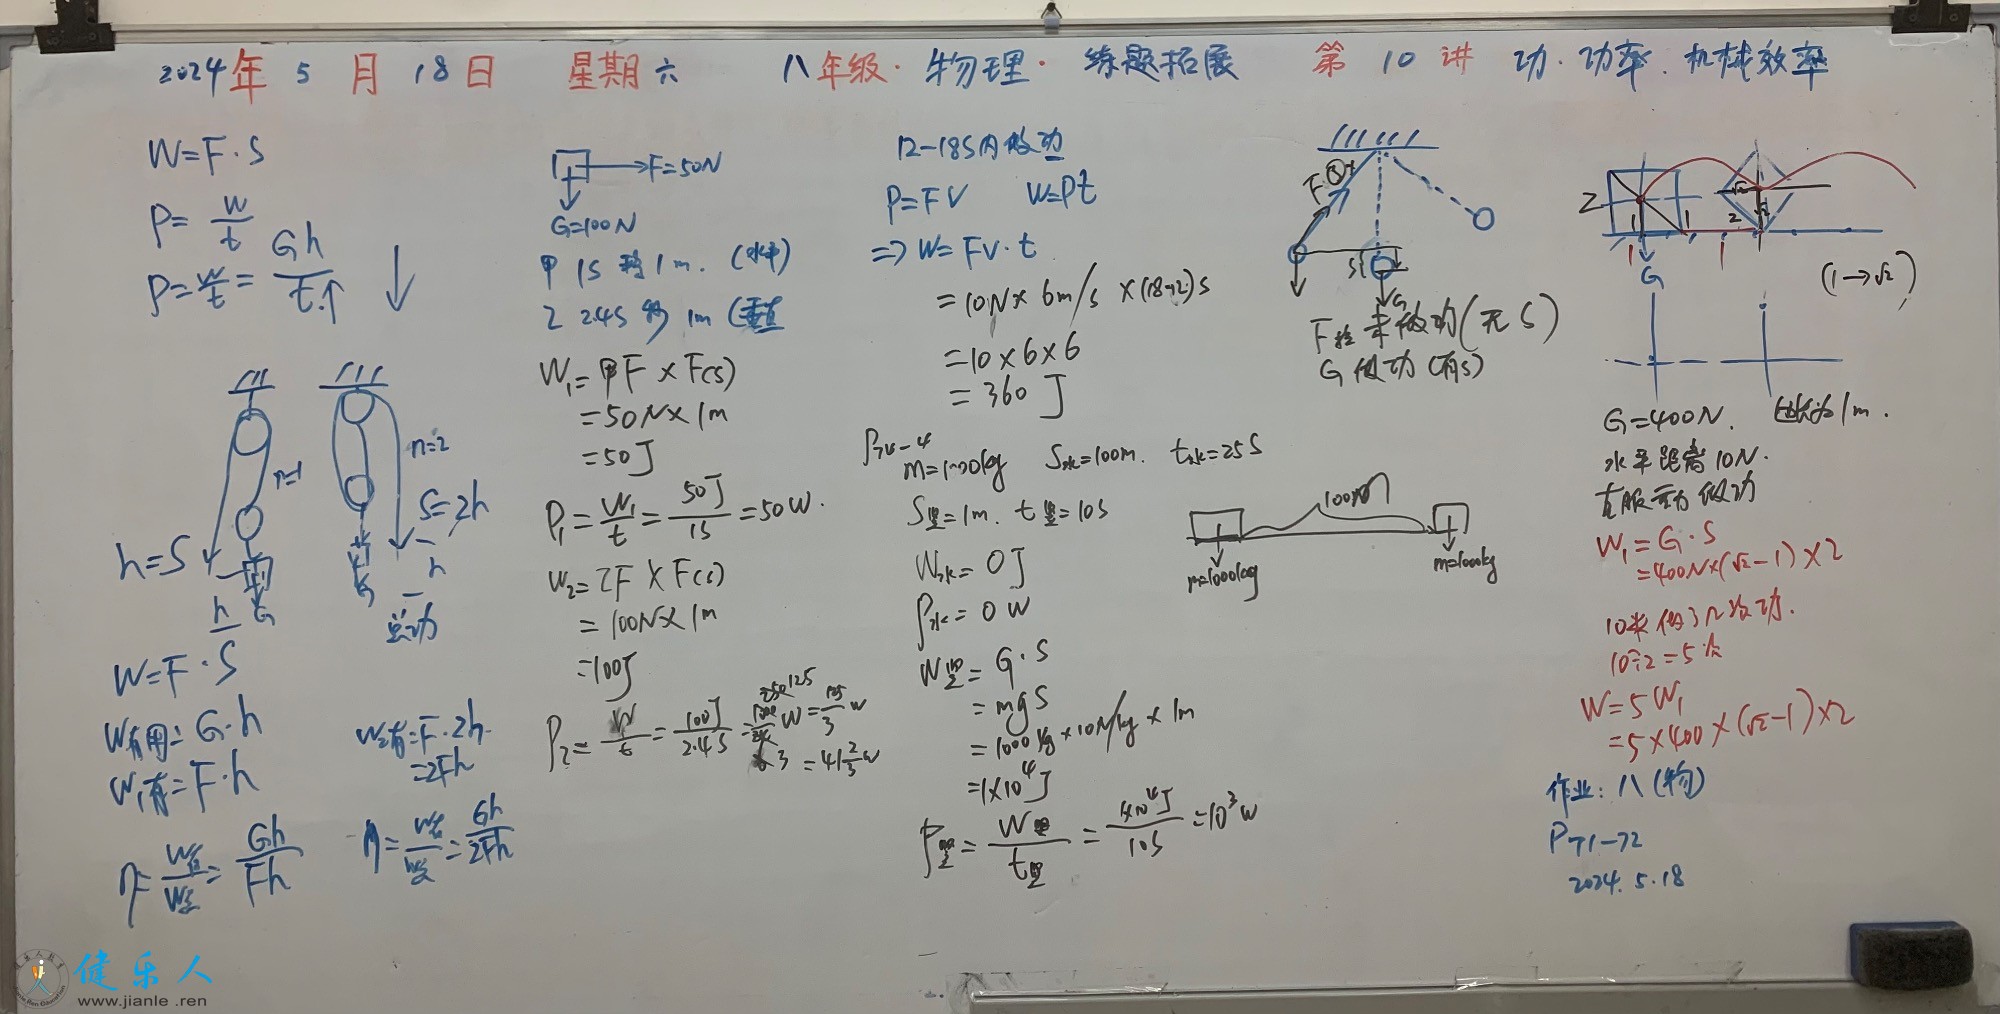 2024年 5 月 18日 星期六 八年级·物理·练题拓展 第 10 讲 功·功率·机械效率
W=F·S
P= W/t
P=W/t= Gh/t↑
n=1
n=2
S=2h
h=S
h
h
G
G
总功
W=F·S
W有用=G·h
W总=F·2h
=2Fh
η=W有/W总=Gh/Fh
η=W有/W总=Gh/2Fh
F=50N
G=100N
甲 1S 移 1m. (水平)
乙 2.4S 移 1m (垂直
W₁=甲F × F(s)
=50N×1m
=50J
P₁=W₁/t=50J/1S=50W.
W₂=乙F × F(s)
=100N×1m
=100J
P₂=W/t=100J/2.4S
=41 2/3 W
12-18S内做功
P=FV W=Pt
=> W=FV·t
=10N×6m/s×(18-12)s
=10×6×6
=360J
m=1000kg S水=100m. t水=25S
S竖=1m. t竖=10S
100m
m=1000kg
m=1000kg
W水=0J
P水=0W
W竖=G·S
=mgS
=1000kg×10N/kg×1m
=1×10⁴J
P竖=W竖/t竖=1×10⁴J/10S=10³W
F拉
S
G
F拉未做功(无S)
G做功(有S)
2
√2
1
1
2
√2
1
1
G
(1→√2)
G=400N. 边长为1m.
水平距离10N.
克服重力做功
W₁=G·S
=400N×(√2-1)×2
10米做了几次功.
10÷2=5次
W=5W₁
=5×400×(√2-1)×2
作业: 八(物)
P71-72
2024.5.18
健乐人
www.jianle.ren